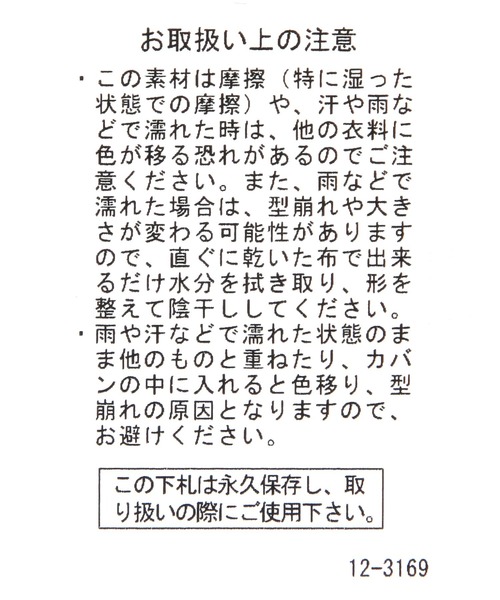 お取扱い上の注意
・この素材は摩擦（特に湿った
状態での摩擦）や、汗や雨な
どで濡れた時は、他の衣料に
色が移る恐れがあるのでご注
意ください。また、雨などで
濡れた場合は、型崩れや大き
さが変わる可能性があります
ので、直ぐに乾いた布で出来
るだけ水分を拭き取り、形を
整えて陰干ししてください。
・雨や汗などで濡れた状態のま
ま他のものと重ねたり、カバ
ンの中に入れると色移り、型
崩れの原因となりますので、
お避けください。
この下札は永久保存し、取
り扱いの際にご使用下さい。
12-3169